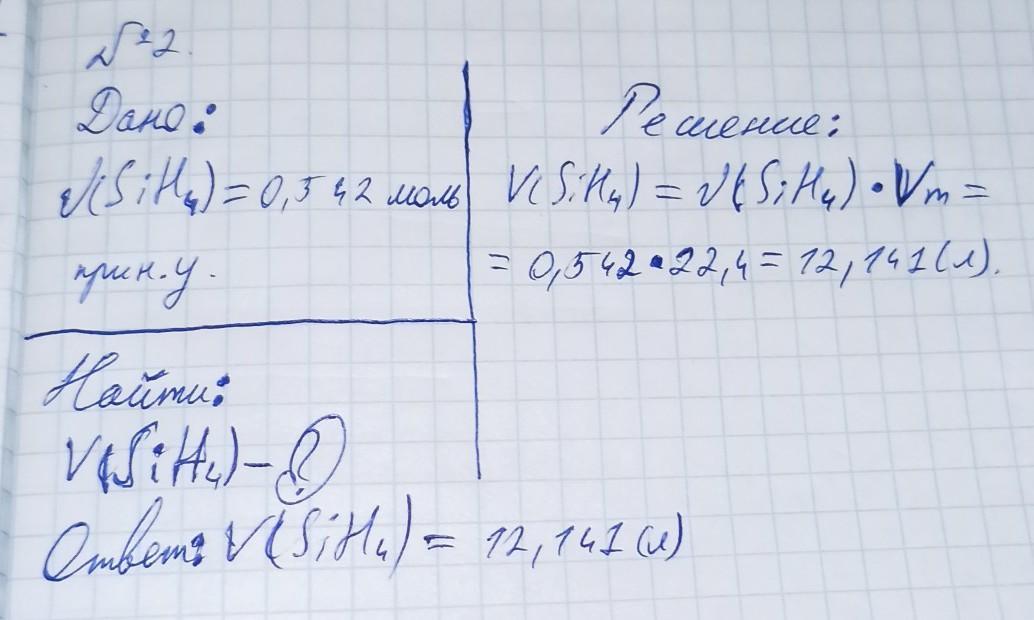 №2.
Дано:
ν(SiH₄) = 0,542 моль
при н.у.
Найти:
V(SiH₄) – ?
Решение:
V(SiH₄) = ν(SiH₄) • Vm =
= 0,542 • 22,4 = 12,141 (л).
Ответ: V(SiH₄) = 12,141 (л)